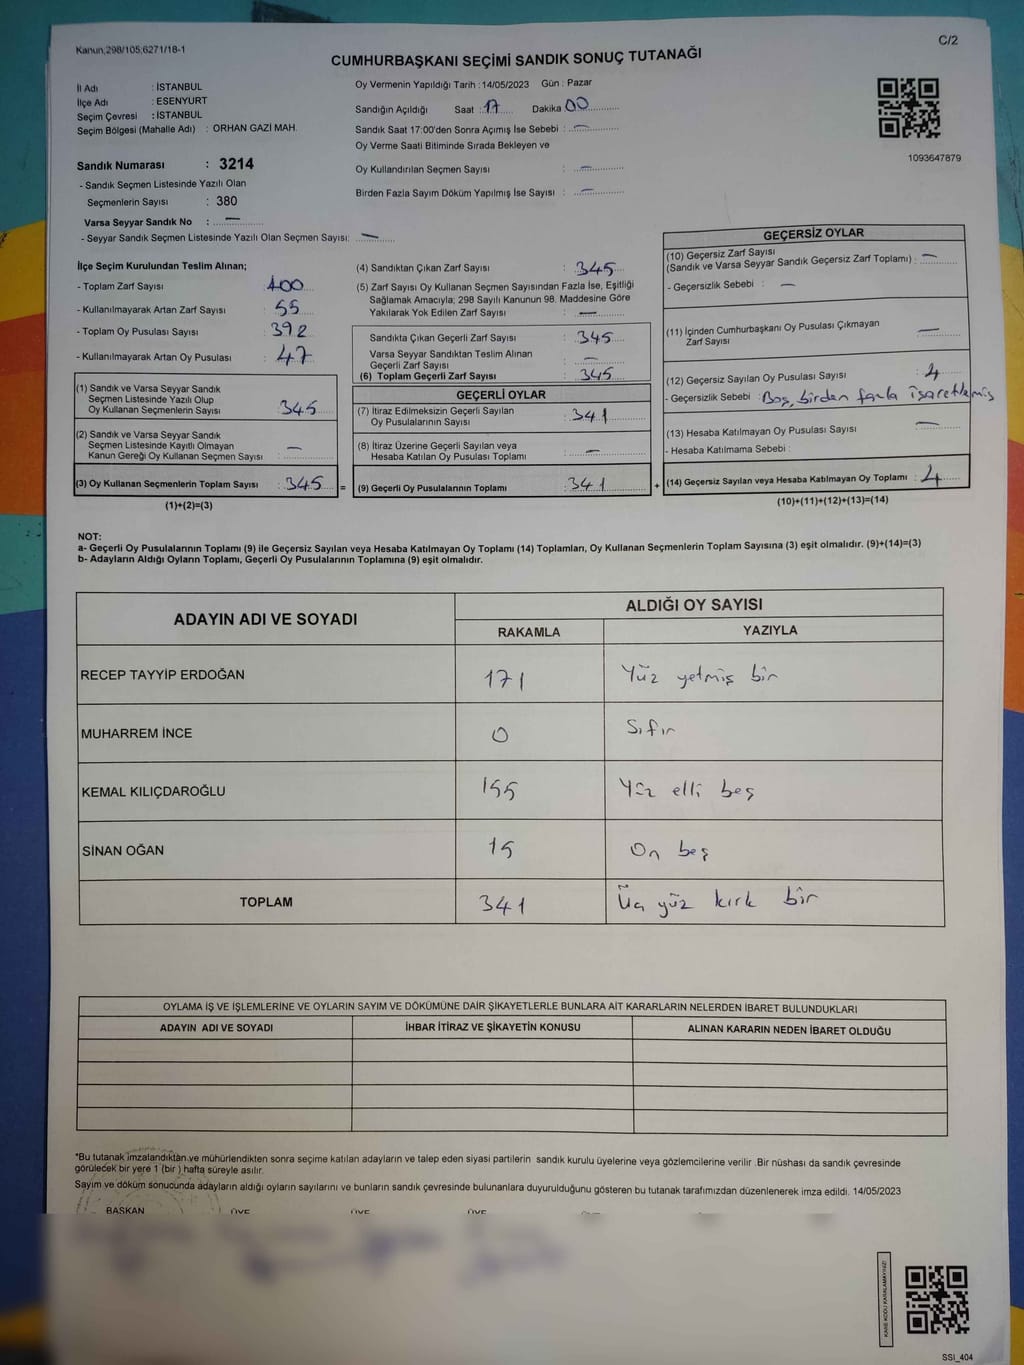 Kanun,298/105,6271/18-1
C/2
CUMHURBAŞKANI SEÇİMİ SANDIK SONUÇ TUTANAĞI
İl Adı : İSTANBUL
İlçe Adı : ESENYURT
Seçim Çevresi : İSTANBUL
Seçim Bölgesi (Mahalle Adı) : ORHAN GAZİ MAH.
Sandık Numarası : 3214
- Sandık Seçmen Listesinde Yazılı Olan
Seçmenlerin Sayısı : 380
Varsa Seyyar Sandık No : —
- Seyyar Sandık Seçmen Listesinde Yazılı Olan Seçmen Sayısı: —
Oy Vermenin Yapıldığı Tarih : 14/05/2023 Gün : Pazar
Sandığın Açıldığı Saat : 17 Dakika 00
Sandık Saat 17:00'den Sonra Açımış İse Sebebi : —
Oy Verme Saati Bitiminde Sırada Bekleyen ve
Oy Kullandırılan Seçmen Sayısı : —
Birden Fazla Sayım Döküm Yapılmış İse Sayısı : —
1093647879
İlçe Seçim Kurulundan Teslim Alınan;
- Toplam Zarf Sayısı : 400
- Kullanılmayarak Artan Zarf Sayısı : 55
- Toplam Oy Pusulası Sayısı : 392
- Kullanılmayarak Artan Oy Pusulası : 47
(1) Sandık ve Varsa Seyyar Sandık
Seçmen Listesinde Yazılı Olup
Oy Kullanan Seçmenlerin Sayısı : 345
(2) Sandık ve Varsa Seyyar Sandık
Seçmen Listesinde Kayıtlı Olmayan
Kanun Gereği Oy Kullanan Seçmen Sayısı : —
(3) Oy Kullanan Seçmenlerin Toplam Sayısı : 345 =
(1)+(2)=(3)
(4) Sandıktan Çıkan Zarf Sayısı : 345
(5) Zarf Sayısı Oy Kullanan Seçmen Sayısından Fazla İse, Eşitliği
Sağlamak Amacıyla; 298 Sayılı Kanunun 98. Maddesine Göre
Yakılarak Yok Edilen Zarf Sayısı : —
Sandıkta Çıkan Geçerli Zarf Sayısı : 345
Varsa Seyyar Sandıktan Teslim Alınan
Geçerli Zarf Sayısı : —
(6) Toplam Geçerli Zarf Sayısı : 345
GEÇERLİ OYLAR
(7) İtiraz Edilmeksizin Geçerli Sayılan
Oy Pusulalarının Sayısı : 341
(8) İtiraz Üzerine Geçerli Sayılan veya
Hesaba Katılan Oy Pusulası Toplamı : —
(9) Geçerli Oy Pusulalarının Toplamı : 341 +
GEÇERSİZ OYLAR
(10) Geçersiz Zarf Sayısı
(Sandık ve Varsa Seyyar Sandık Geçersiz Zarf Toplamı) : —
- Geçersizlik Sebebi : —
(11) İçinden Cumhurbaşkanı Oy Pusulası Çıkmayan
Zarf Sayısı : —
(12) Geçersiz Sayılan Oy Pusulası Sayısı : 4
- Geçersizlik Sebebi : Boş, birden fazla işaretlemiş
(13) Hesaba Katılmayan Oy Pusulası Sayısı : —
- Hesaba Katılmama Sebebi :
(14) Geçersiz Sayılan veya Hesaba Katılmayan Oy Toplamı : 4
(10)+(11)+(12)+(13)=(14)
NOT:
a- Geçerli Oy Pusulalarının Toplamı (9) ile Geçersiz Sayılan veya Hesaba Katılmayan Oy Toplamı (14) Toplamları, Oy Kullanan Seçmenlerin Toplam Sayısına (3) eşit olmalıdır. (9)+(14)=(3)
b- Adayların Aldığı Oyların Toplamı, Geçerli Oy Pusulalarının Toplamına (9) eşit olmalıdır.
ADAYIN ADI VE SOYADI ALDIĞI OY SAYISI
RAKAMLA YAZIYLA
RECEP TAYYİP ERDOĞAN 171 Yüz yetmiş bir
MUHARREM İNCE 0 Sıfır
KEMAL KILIÇDAROĞLU 155 Yüz elli beş
SİNAN OĞAN 15 On beş
TOPLAM 341 Üç yüz kırk bir
OYLAMA İŞ VE İŞLEMLERİNE VE OYLARIN SAYIM VE DÖKÜMÜNE DAİR ŞİKAYETLERLE BUNLARA AİT KARARLARIN NELERDEN İBARET BULUNDUKLARI
ADAYIN ADI VE SOYADI İHBAR İTİRAZ VE ŞİKAYETİN KONUSU ALINAN KARARIN NEDEN İBARET OLDUĞU
*Bu tutanak imzalandıktan ve mühürlendikten sonra seçime katılan adayların ve talep eden siyasi partilerin sandık kurulu üyelerine veya gözlemcilerine verilir .Bir nüshası da sandık çevresinde
görülecek bir yere 1 (bir ) hafta süreyle asılır.
Sayım ve döküm sonucunda adayların aldığı oyların sayılarını ve bunların sandık çevresinde bulunanlara duyurulduğunu gösteren bu tutanak tarafımızdan düzenlenerek imza edildi. 14/05/2023
BAŞKAN ÜYE ÜYE ÜYE
KARE KODU KARALAMAYINIZ!
SSI_404